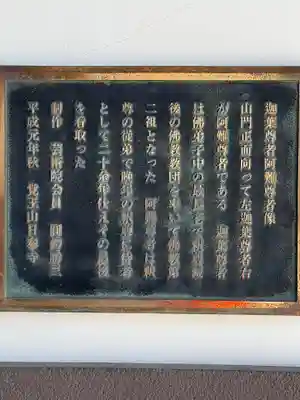 迦葉尊者阿難尊者像
山門正面向って左迦葉尊者右
が阿難尊者である 迦葉尊者
は佛弟子中の
後の佛教教団を率いて佛教第
二祖となった 阿難尊者は釈
尊の従弟で晩年の釈尊の侍者
として二十余年仕えその最後
を看取った
制作 芸術院会員 圓鍔勝三
平成元年秋 覚王山日泰寺